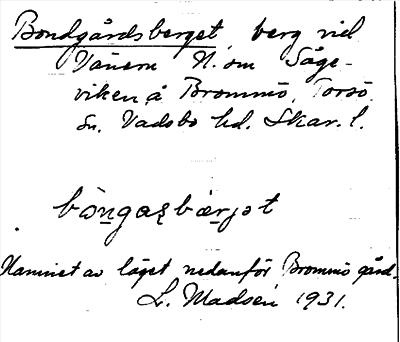 Bondgårdsberget, berg vid
Vänern N. om Såge-
viken å Brommö, Torsö
sn. Vadsbo hd. Skar. l.
bò̀n̲gaʂbæ̀r̲jət
Namnet av läget nedanför Brommö gård.
L. Madsén 1931.